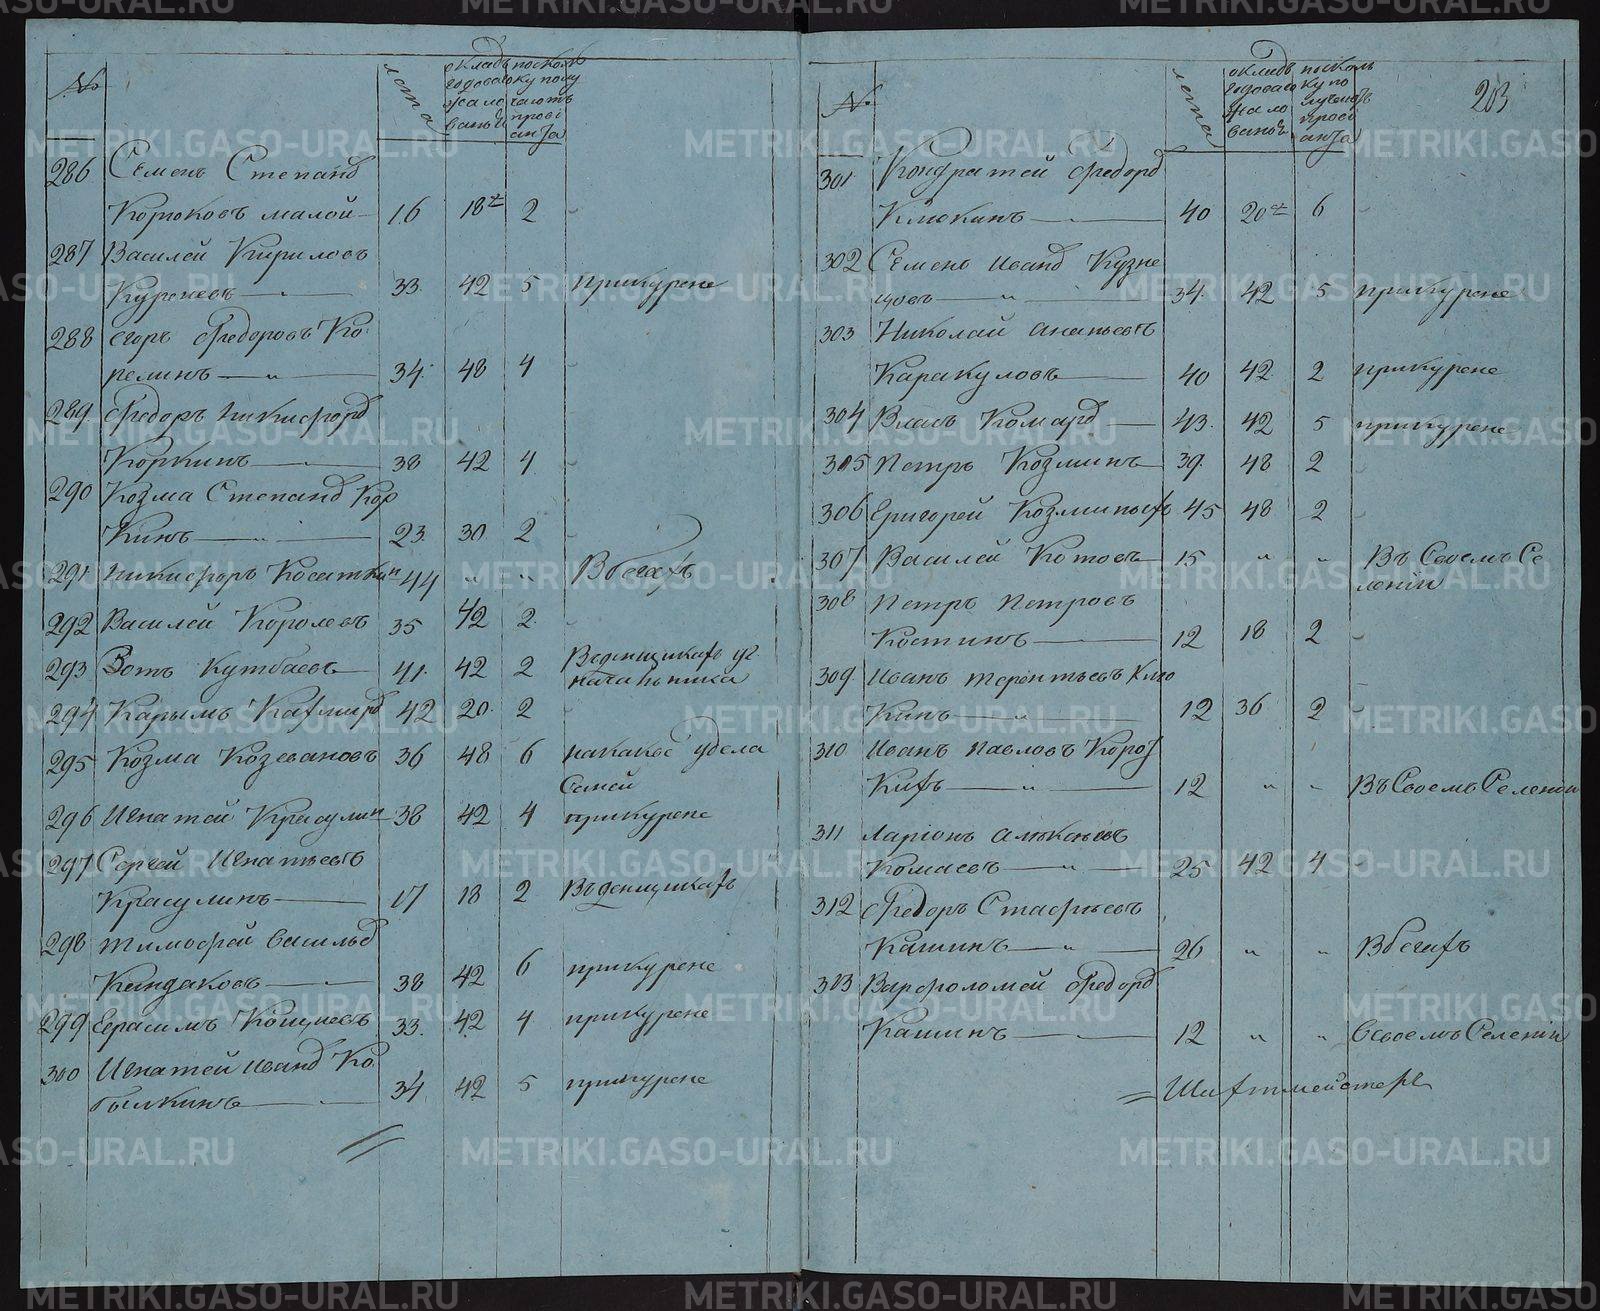 №
лета
окладъ
годоваго
жало
ванья
посколь
ку полу
чаютъ
прові
анта
286 Семенъ Степанов
Корюковъ малой 16 18 2
287 Василей Кириловъ
Курочевъ 33 42 5 прикурене
288 Егоръ Федоровъ Ко
релинъ 34 48 4
289 Федоръ Никифоров
Коркинъ 38 42 4
290 Козма Степанов Кор
кинъ 23 30 2
291 Никифоръ Косаткин 44 " " Вбегахъ
292 Василей Королевъ 35 42 2
293 Зотъ Кутбаевъ 41 42 2 Вденщикахъ уг.
началника
294 Карымъ 42 20 2
295 Козма Козевановъ 36 48 6 удела
296 Игнатей Красулин 38 42 4 прикурене
297 Сергей Игнатьевъ
Красулинъ 17 18 2 Вденщикахъ
298 Тимофей Васильев
Кандаковъ 38 42 6 прикурене
299 Герасимъ 33 42 4 прикурене
300 Игнатей Иванов Ко
былкинъ 34 42 5 прикурене
203
№
лета
окладъ
годоваго
жало
ванья
посколь
ку по
лучаютъ
прові
анта
301 Кондратей Федоров
Клюкинъ 40 20 6
302 Семенъ Иванов Кузне
цовъ 34 42 5 прикурене
303 Николай Ананьевъ
Каракуловъ 40 42 2 прикурене
304 Власъ Комаров 43 42 5 прикурене
305 Петръ Козминъ 39 48 2
306 Григорей Козминыхъ 45 48 2
307 Василей Котовъ 15 " " Въ Своемъ Се
леніи
308 Петръ Петровъ
Костинъ 12 18 2
309 Иванъ Терентьевъ Клю
кинъ 12 36 2
310 Иванъ Павловъ Корот
кихъ 12 " " Въ Своемъ Селеніи
311 Ларіонъ Алексеевъ
Комаевъ 25 42 4
312 Федоръ Стафеевъ
Кашинъ 26 " " Вбегахъ
313 Варфоломей Федоров
Кашинъ 12 " " Всвоемъ Селеніи
Шихтмейстеръ
METRIKI.GASO-URAL.RU